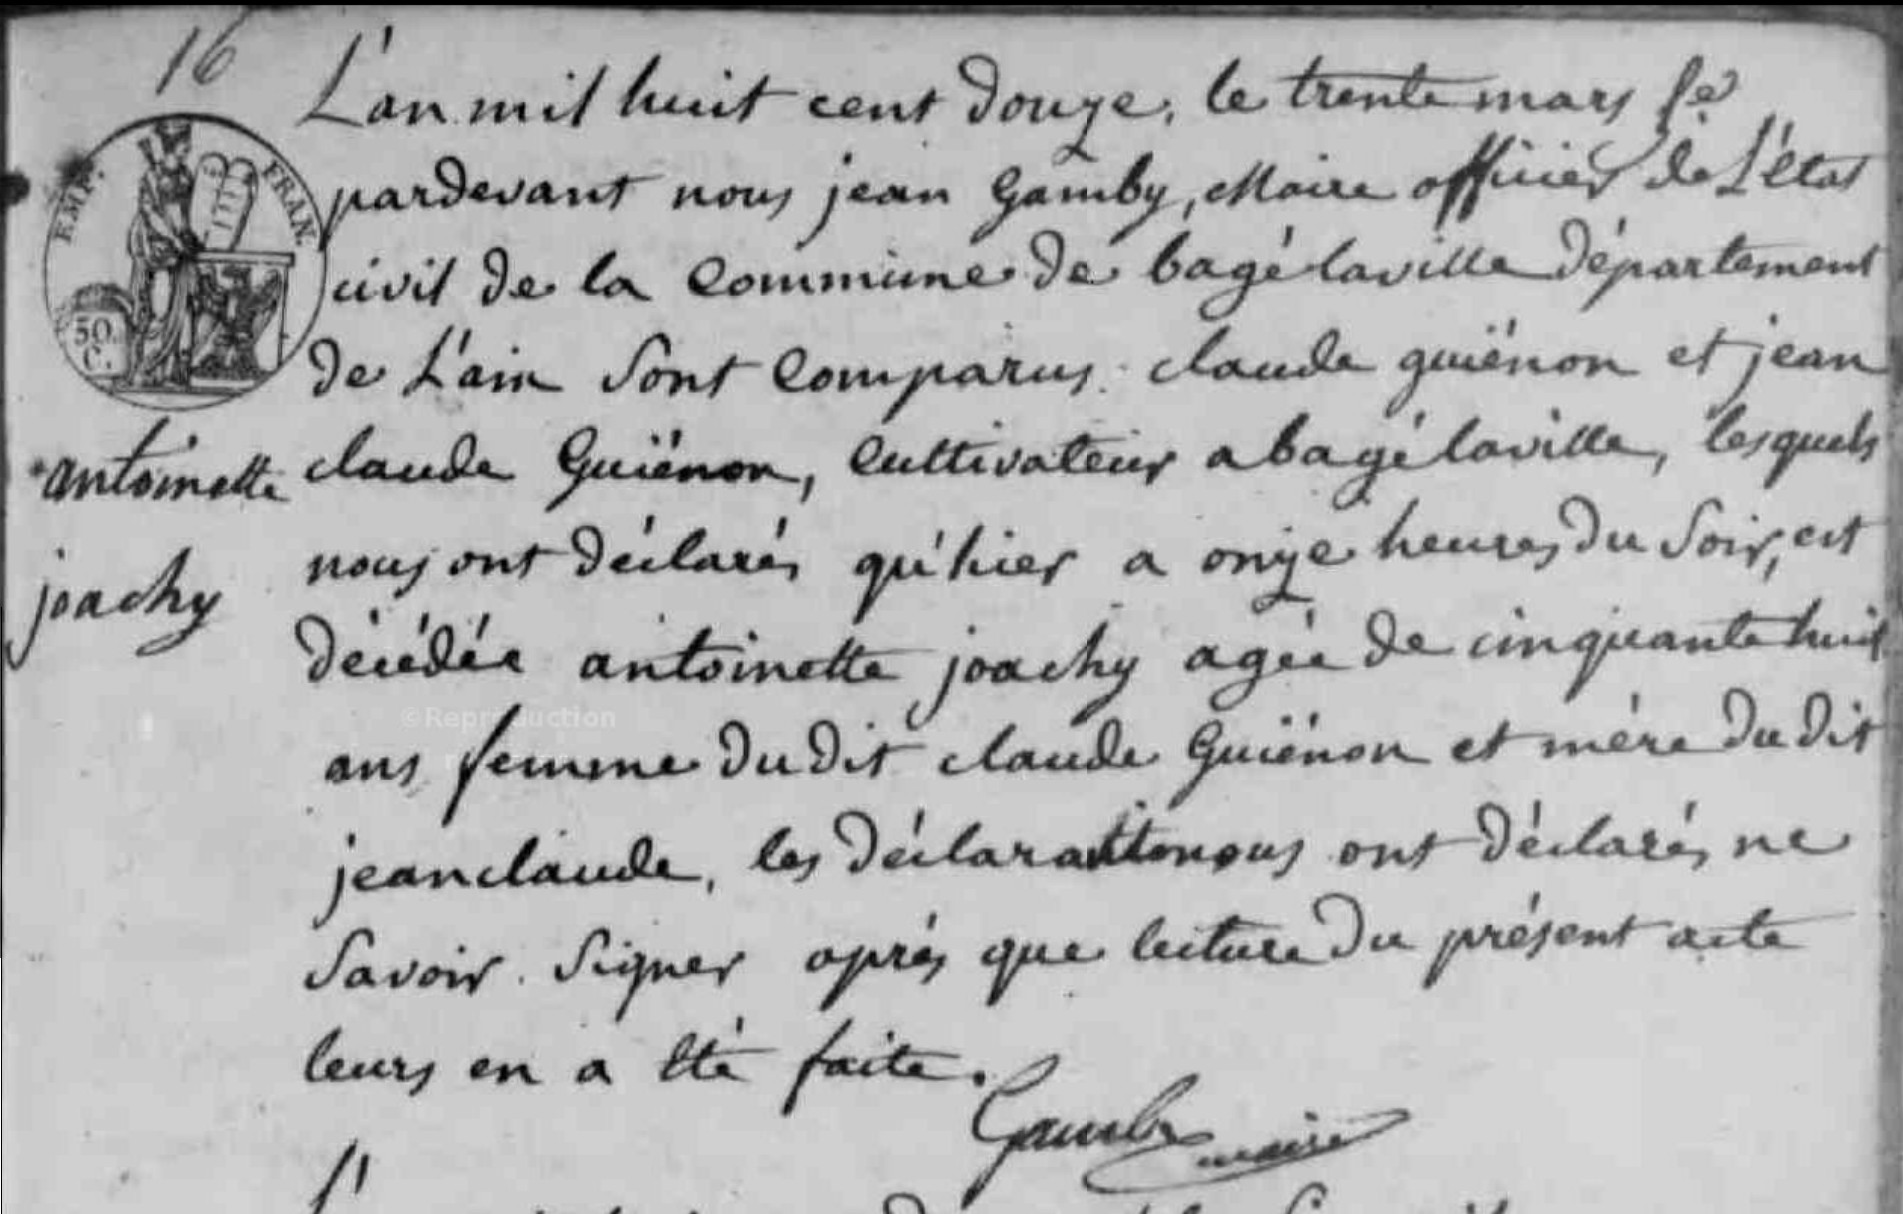 16
L'an mil huit cent douze, le trente mars
pardevant nous jean Gamby, Maire officier de L'état
civil de la Commune de bagé laville département
de L'ain sont Comparus claude guiénon et jean
claude Guiénon, Cultivateur a bagé laville, lesquels
nous ont déclarés qu'hier a onze heures du soir, est
décédée antoinette joachy agée de cinquante huit
ans femme du dit claude Guiénon et mére du dit
jeanclaude, les nous ont déclarés ne
savoir signer aprés que lecture du présent acte
leurs en a été faite.
Gamby maire
antoinette
joachy
EMP. FRAN.
50
C.
©Reproduction